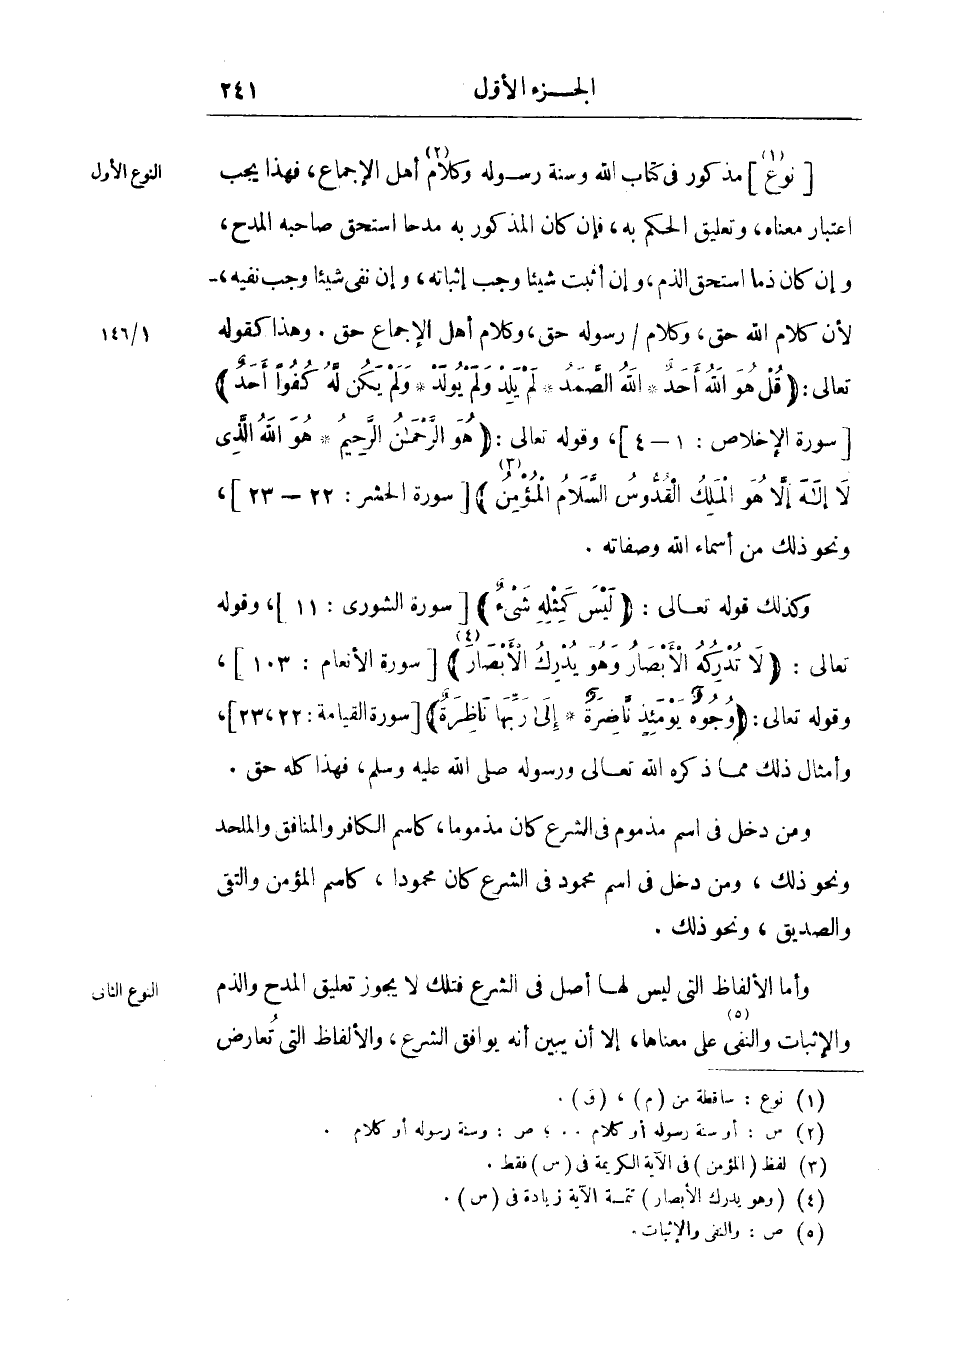 الجـزء الأول ٢٤١
[ نوع ](١) مذكور فى كتاب الله وسنة رسـوله وكلام(٢) أهل الإجماع، فهذا يجب
النوع الأول
اعتبار معناه، وتعليق الحكم به، فإن كان المذكور به مدحا استحق صاحبه المدح،
وإن كان ذما استحق الذم، وإن أثبت شيئا وجب إثباته، وإن نفى شيئا وجب نفيه،-
لأن كلام الله حق، وكلام / رسوله حق، وكلام أهل الإجماع حق . وهذا كقوله
١٤٦/١
تعالى: ﴿ قُلْ هُوَ اللَّهُ أَحَدٌ * اللَّهُ الصَّمَدُ * لَمْ يَلِدْ وَلَمْ يُولَدْ * وَلَمْ يَكُن لَّهُ كُفُوًا أَحَدٌ ﴾
[ سورة الإخلاص : ١ – ٤ ]، وقوله تعالى : ﴿ هُوَ الرَّحْمَـٰنُ الرَّحِيمُ * هُوَ اللَّهُ الَّذِى
لَا إِلَـٰهَ إِلَّا هُوَ الْمَلِكُ الْقُدُّوسُ السَّلَامُ الْمُؤْمِنُ(٣) ﴾ [ سورة الحشر : ٢٢ – ٢٣ ]،
ونحو ذلك من أسماء الله وصفاته .
وكذلك قوله تعـالى : ﴿ لَيْسَ كَمِثْلِهِ شَىْءٌ ﴾ [ سورة الشورى : ١١ ]، وقوله
تعالى : ﴿ لَا تُدْرِكُهُ الْأَبْصَارُ وَهُوَ يُدْرِكُ الْأَبْصَارَ(٤) ﴾ [ سورة الأنعام : ١٠٣ ]،
وقوله تعالى: ﴿ وُجُوهٌ يَوْمَئِذٍ نَّاضِرَةٌ * إِلَىٰ رَبِّهَا نَاظِرَةٌ ﴾ [سورة القيامة: ٢٢، ٢٣]،
وأمثال ذلك ممـا ذكره الله تعـالى ورسوله صلى الله عليه وسلم، فهذا كله حق .
ومن دخل فى اسم مذموم فى الشرع كان مذموما، كاسم الكافر والمنافق والملحد
ونحو ذلك ، ومن دخل فى اسم محمود فى الشرع كان محمودا ، كاسم المؤمن والتقى
والصديق ، ونحو ذلك .
وأما الألفاظ التى ليس لهـا أصل فى الشرع فتلك لا يجوز تعليق المدح والذم
النوع الثانى
والإثبات والنفى(٥) على معناها، إلا أن يبين أنه يوافق الشرع، والألفاظ التى تُعارض
(١) نوع : ساقطة من (م) ، (ق) .
(٢) س : أو سنة رسوله أو كلام .. ؛ ص : وسنة رسوله أو كلام .
(٣) لفظ (المؤمن) فى الآية الكريمة فى (س) فقط .
(٤) (وهو يدرك الأبصار) تتمـة الآية زيادة فى (س) .
(٥) ص : والنفى والإثبات .